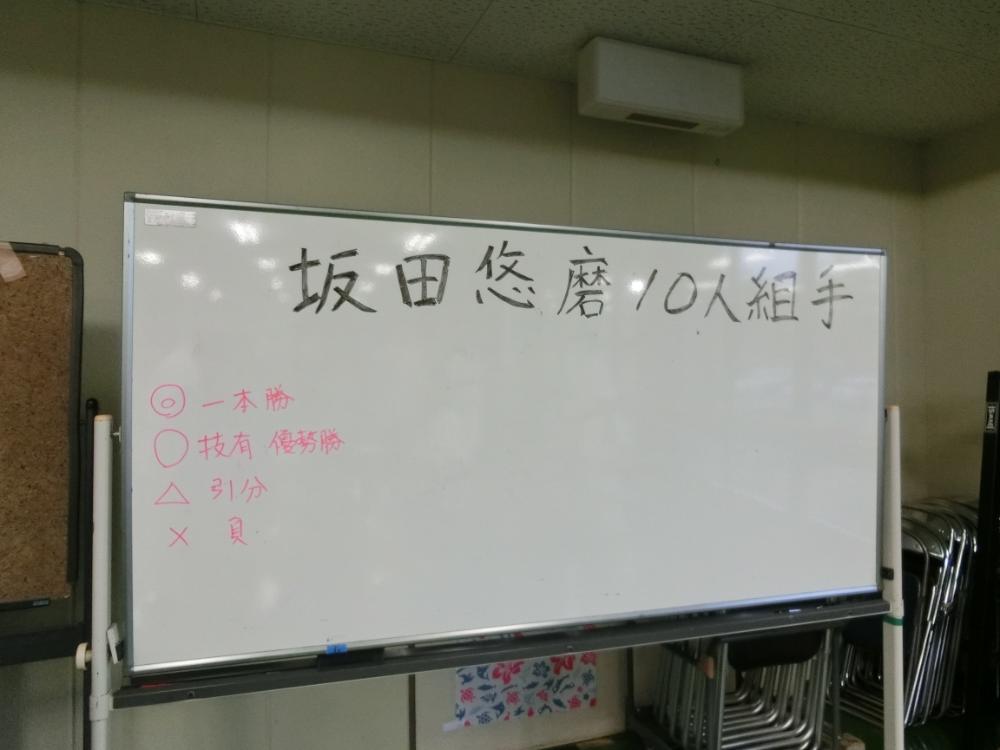 坂田悠磨10人組手
◎ 一本勝
○ 技有 優勢勝
△ 引分
× 負